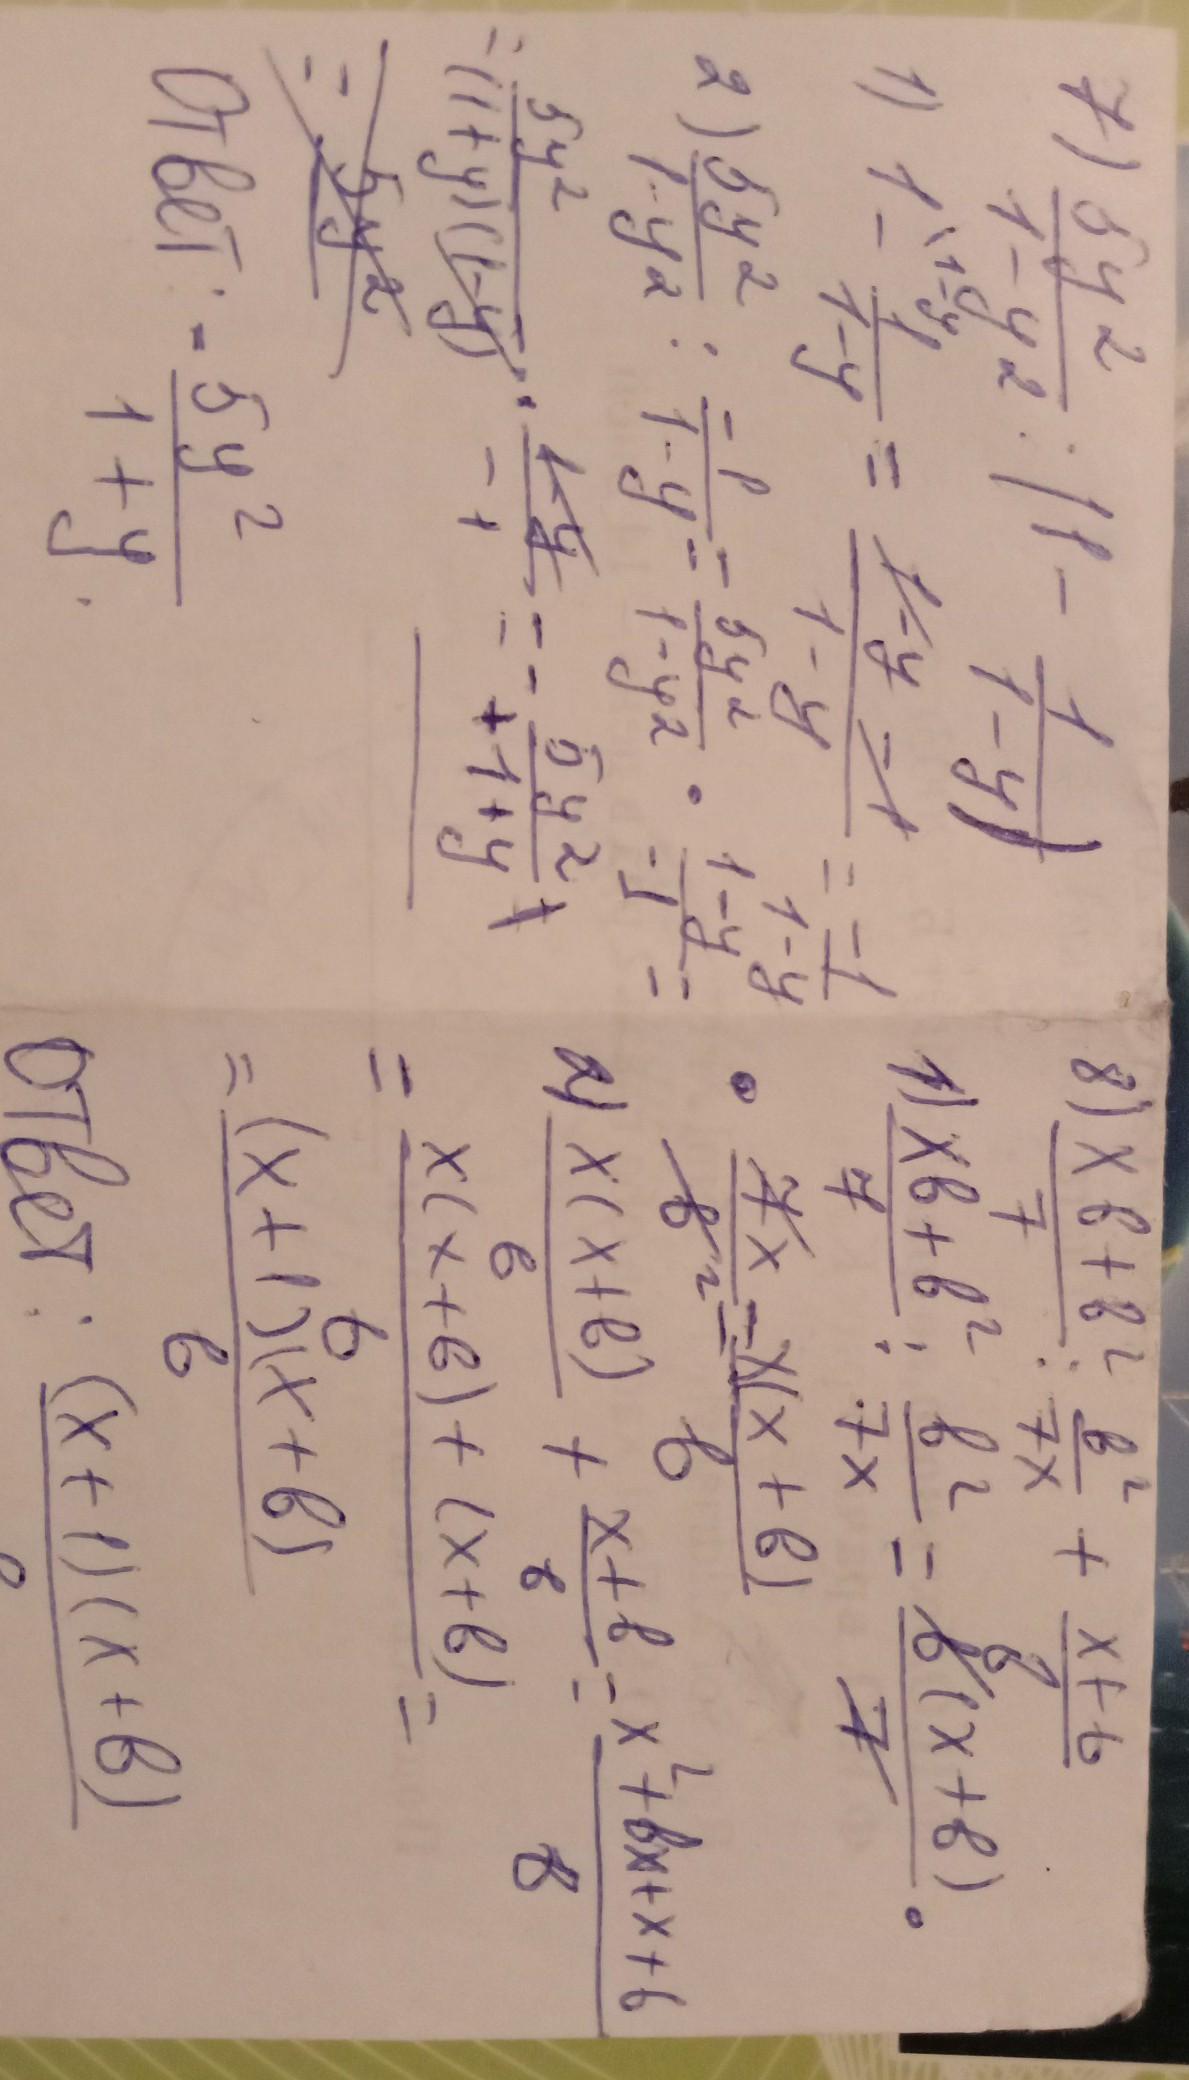 7) 5y²/(1-y²) : (1 - 1/(1-y))
1) 1\1-y - 1/(1-y) = (1-y-1)/(1-y) = -1/(1-y)
2) 5y²/(1-y²) : -1/(1-y) = 5y²/(1-y²) · (1-y)/(-1) =
= 5y²/((1+y)(1-y)) · (1-y)/(-1) = -5y²/(1+y)
= 5y²
Ответ: -5y²/(1+y).
8) (xв+в²)/7 : в²/7x + (x+в)/в
1) (xв+в²)/7 : в²/7x = в(x+в)/7 ·
· 7x/в² = x(x+в)/в
2) x(x+в)/в + (x+в)/в = (x²+вx+x+в)/в
= (x(x+в)+(x+в))/в =
= (x+1)(x+в)/в
Ответ: (x+1)(x+в)